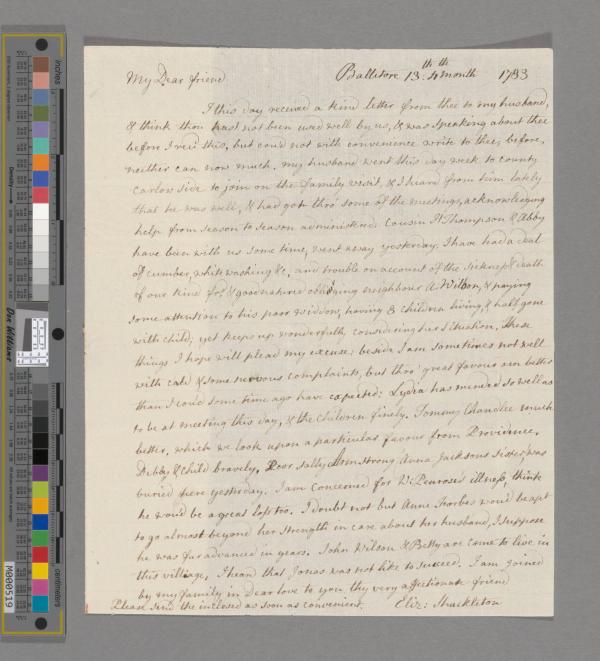 My Dear friend Ballitore 13th: 4th month 1783
I this day received a kind letter from thee to my husband,
& think thou hast not been used well by us, I was speaking about thee
before I rec'd this, but cou'd not with convenience write to thee, before,
neither can now much. my husband went this day week to county
Carlow side to join on the family visit, & I heard from him lately
that he was well, & had got thro' some of the meetings, acknowledging
help from season to season administered. Cousin Thompson & Abby
have been with us some time, went away yesterday. I have had a deal
of cumber, whitewashing &c, and trouble on account of the sickness & death
of our kind & good natured obliging neighbour A. Wilson, & paying
some attention to his poor widdow, having 8 children living, & half gone
with child; yet keeps up wonderfully considering her situation, these
things I hope will plead my excuse; beside I am sometimes not well
with cold & some nervous complaints, but thro' great favour am better
than I could some time ago have expected: Lydia has mended so well as
to be at meeting this day, & the children finely. Tommy Chandlee much
better, which we look upon a particular favour from Providence.
Debby & child bravely. Poor Sally Armstrong Anna Jacksons Sister was
buried here yesterday. I am concerned for W: Penrose's illness, think
he wou'd be a great loss too. I doubt not but Anne Forbes wou'd be apt
to go almost beyond her strength in care about her husband, I suppose
he was far advanced in years. John Wilson & Betty are come to live in
this village, I heard that Jonas was not like to succeed. I am joined
by my family in Dear love to you thy very affectionate friend
Please send the inclosed as soon as convenient. Eliz: Shackleton
inches
centimeters
Density
Don Williams
M000519